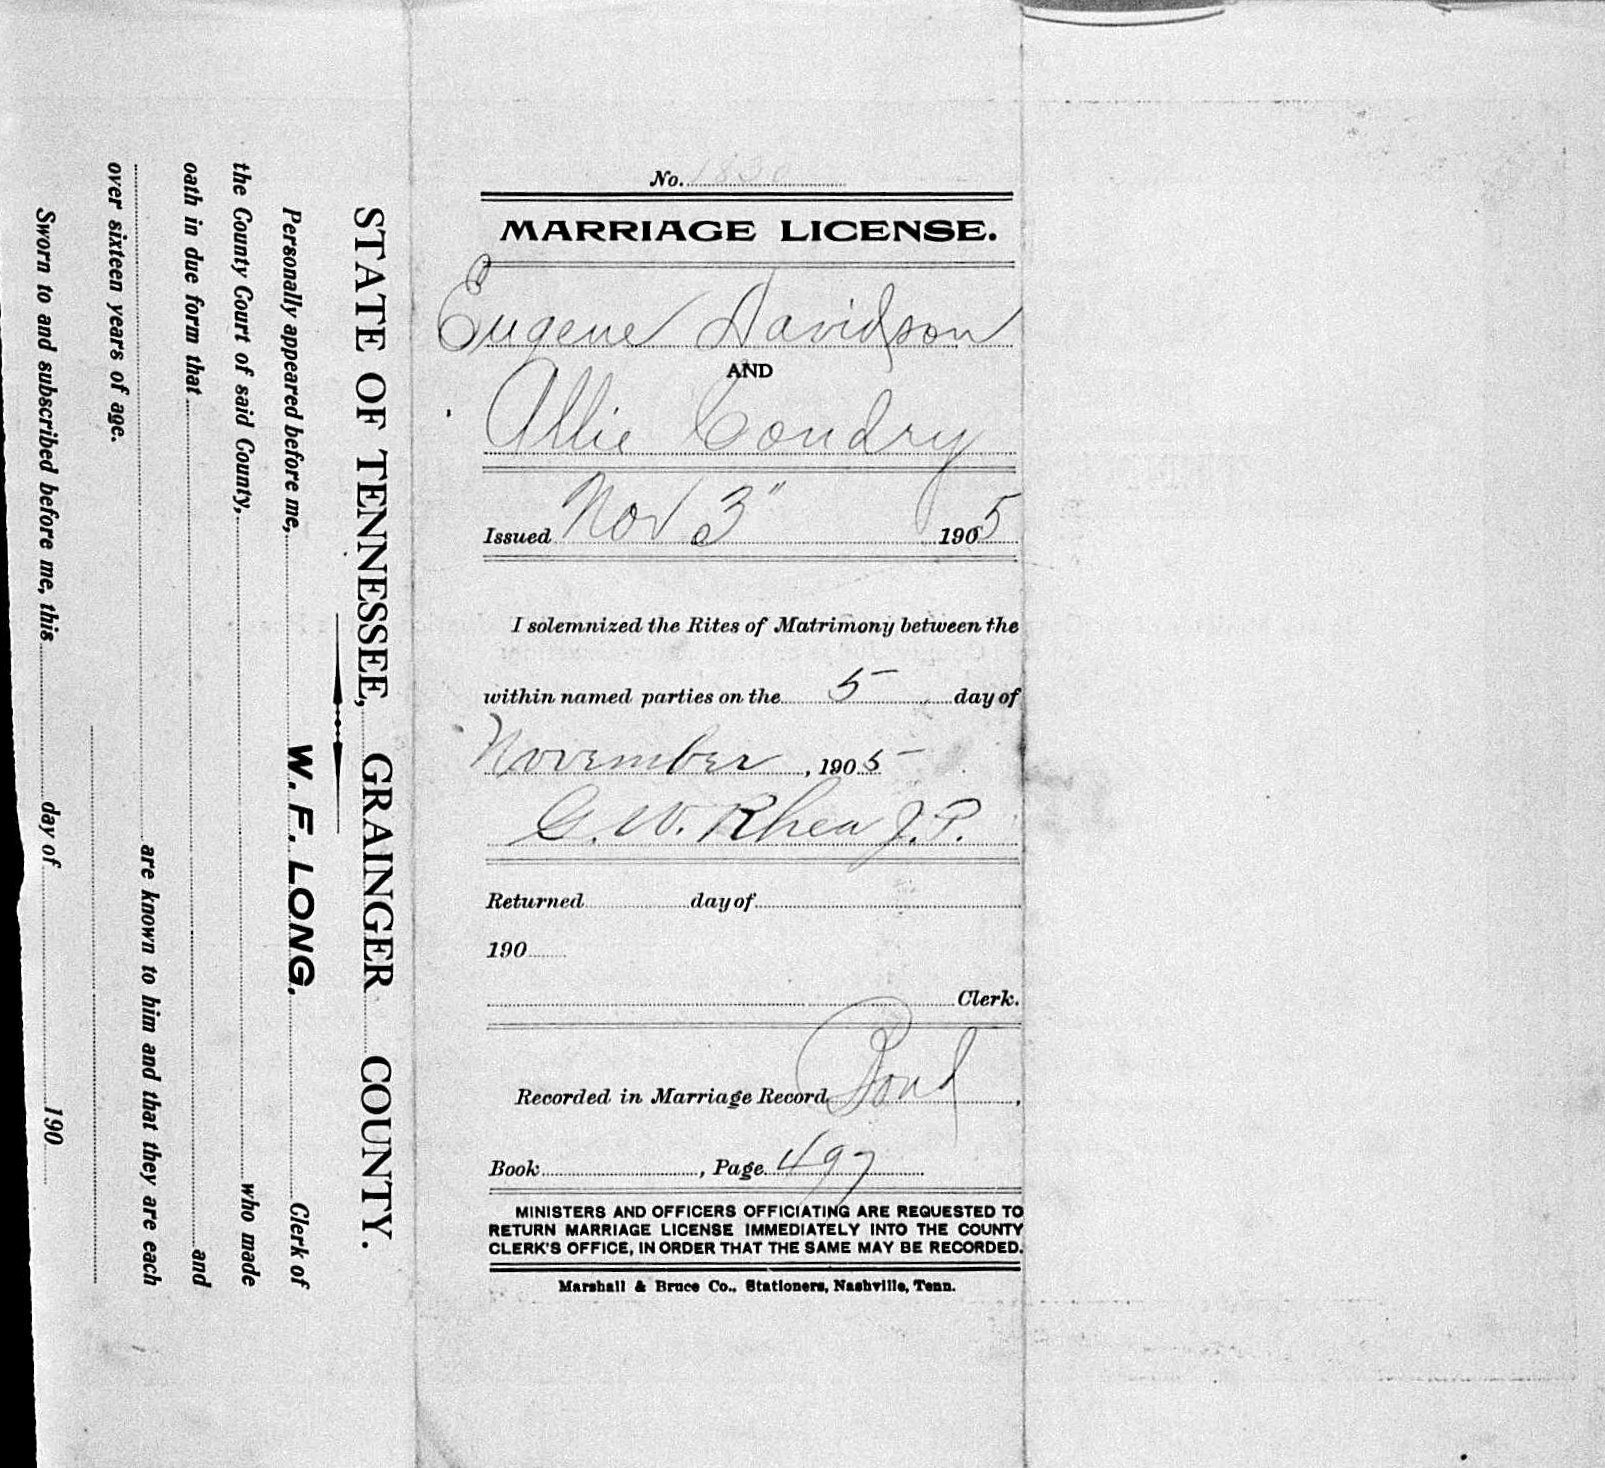 No. 1830
MARRIAGE LICENSE.
Eugene Davidson
AND
Allie Condry
Issued Nov 3" 1905
I solemnized the Rites of Matrimony between the
within named parties on the 5 day of
November, 1905
G. W. Rhea J.P.
Returned day of
190
Clerk.
Recorded in Marriage Record Bond,
Book , Page 497
MINISTERS AND OFFICERS OFFICIATING ARE REQUESTED TO
RETURN MARRIAGE LICENSE IMMEDIATELY INTO THE COUNTY
CLERK'S OFFICE, IN ORDER THAT THE SAME MAY BE RECORDED.
Marshall & Bruce Co., Stationers, Nashville, Tenn.
STATE OF TENNESSEE, GRAINGER COUNTY.
Personally appeared before me, W. F. LONG. Clerk of
the County Court of said County, who made
oath in due form that and
are known to him and that they are each
over sixteen years of age.
Sworn to and subscribed before me, this day of 190